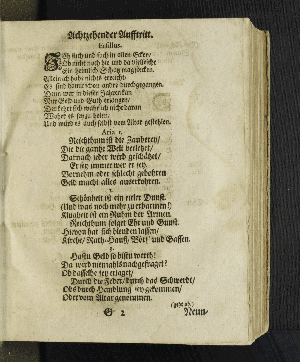 Achtzehender Aufftritt.
Bacillus.
Ich such und such in allen Ecken/
Ob nicht noch hie und da vielleicht
Ein heimlich Schatz mag stecken.
Allein ich habe nichts erreicht/
Es sind andre schon durchgegangen.
Dann wer in dieser Zeit
Nur Geld und Guth erlanget/
Der kehrt sich nicht daran
Woher es sey zu holen/
Und würd es auch selbst vom Altar gestohlen.
Aria 1.
Reichthum ist die Zauberey/
Die die gantze Welt bethöret/
Darnach jeder wird geschätzet/
Er sey immer wer er sey.
Vornehm oder schlecht gebohren
Geld macht alles auserkohren.
2.
Schönheit ist ein eitler Dunst.
(Und was noch mehr zu erbarmen!)
Klugheit ist ein Ruhm der Armen.
Reichthum folget Ehr und Gunst.
Hievon hat sich blenden lassen/
Kirche/ Rath-Hauß/ Börs' und Gassen.
3.
Hastu Geld so bistu werth!
Da wird niemahls nachgefraget?
Ob dasselbe sey erjaget/
Durch die Feder/ durch das Schwerdt/
Obs durch Handlung sey gekommen/
Oder vom Altar genommen.
(geht ab.)
G 2 Neun-